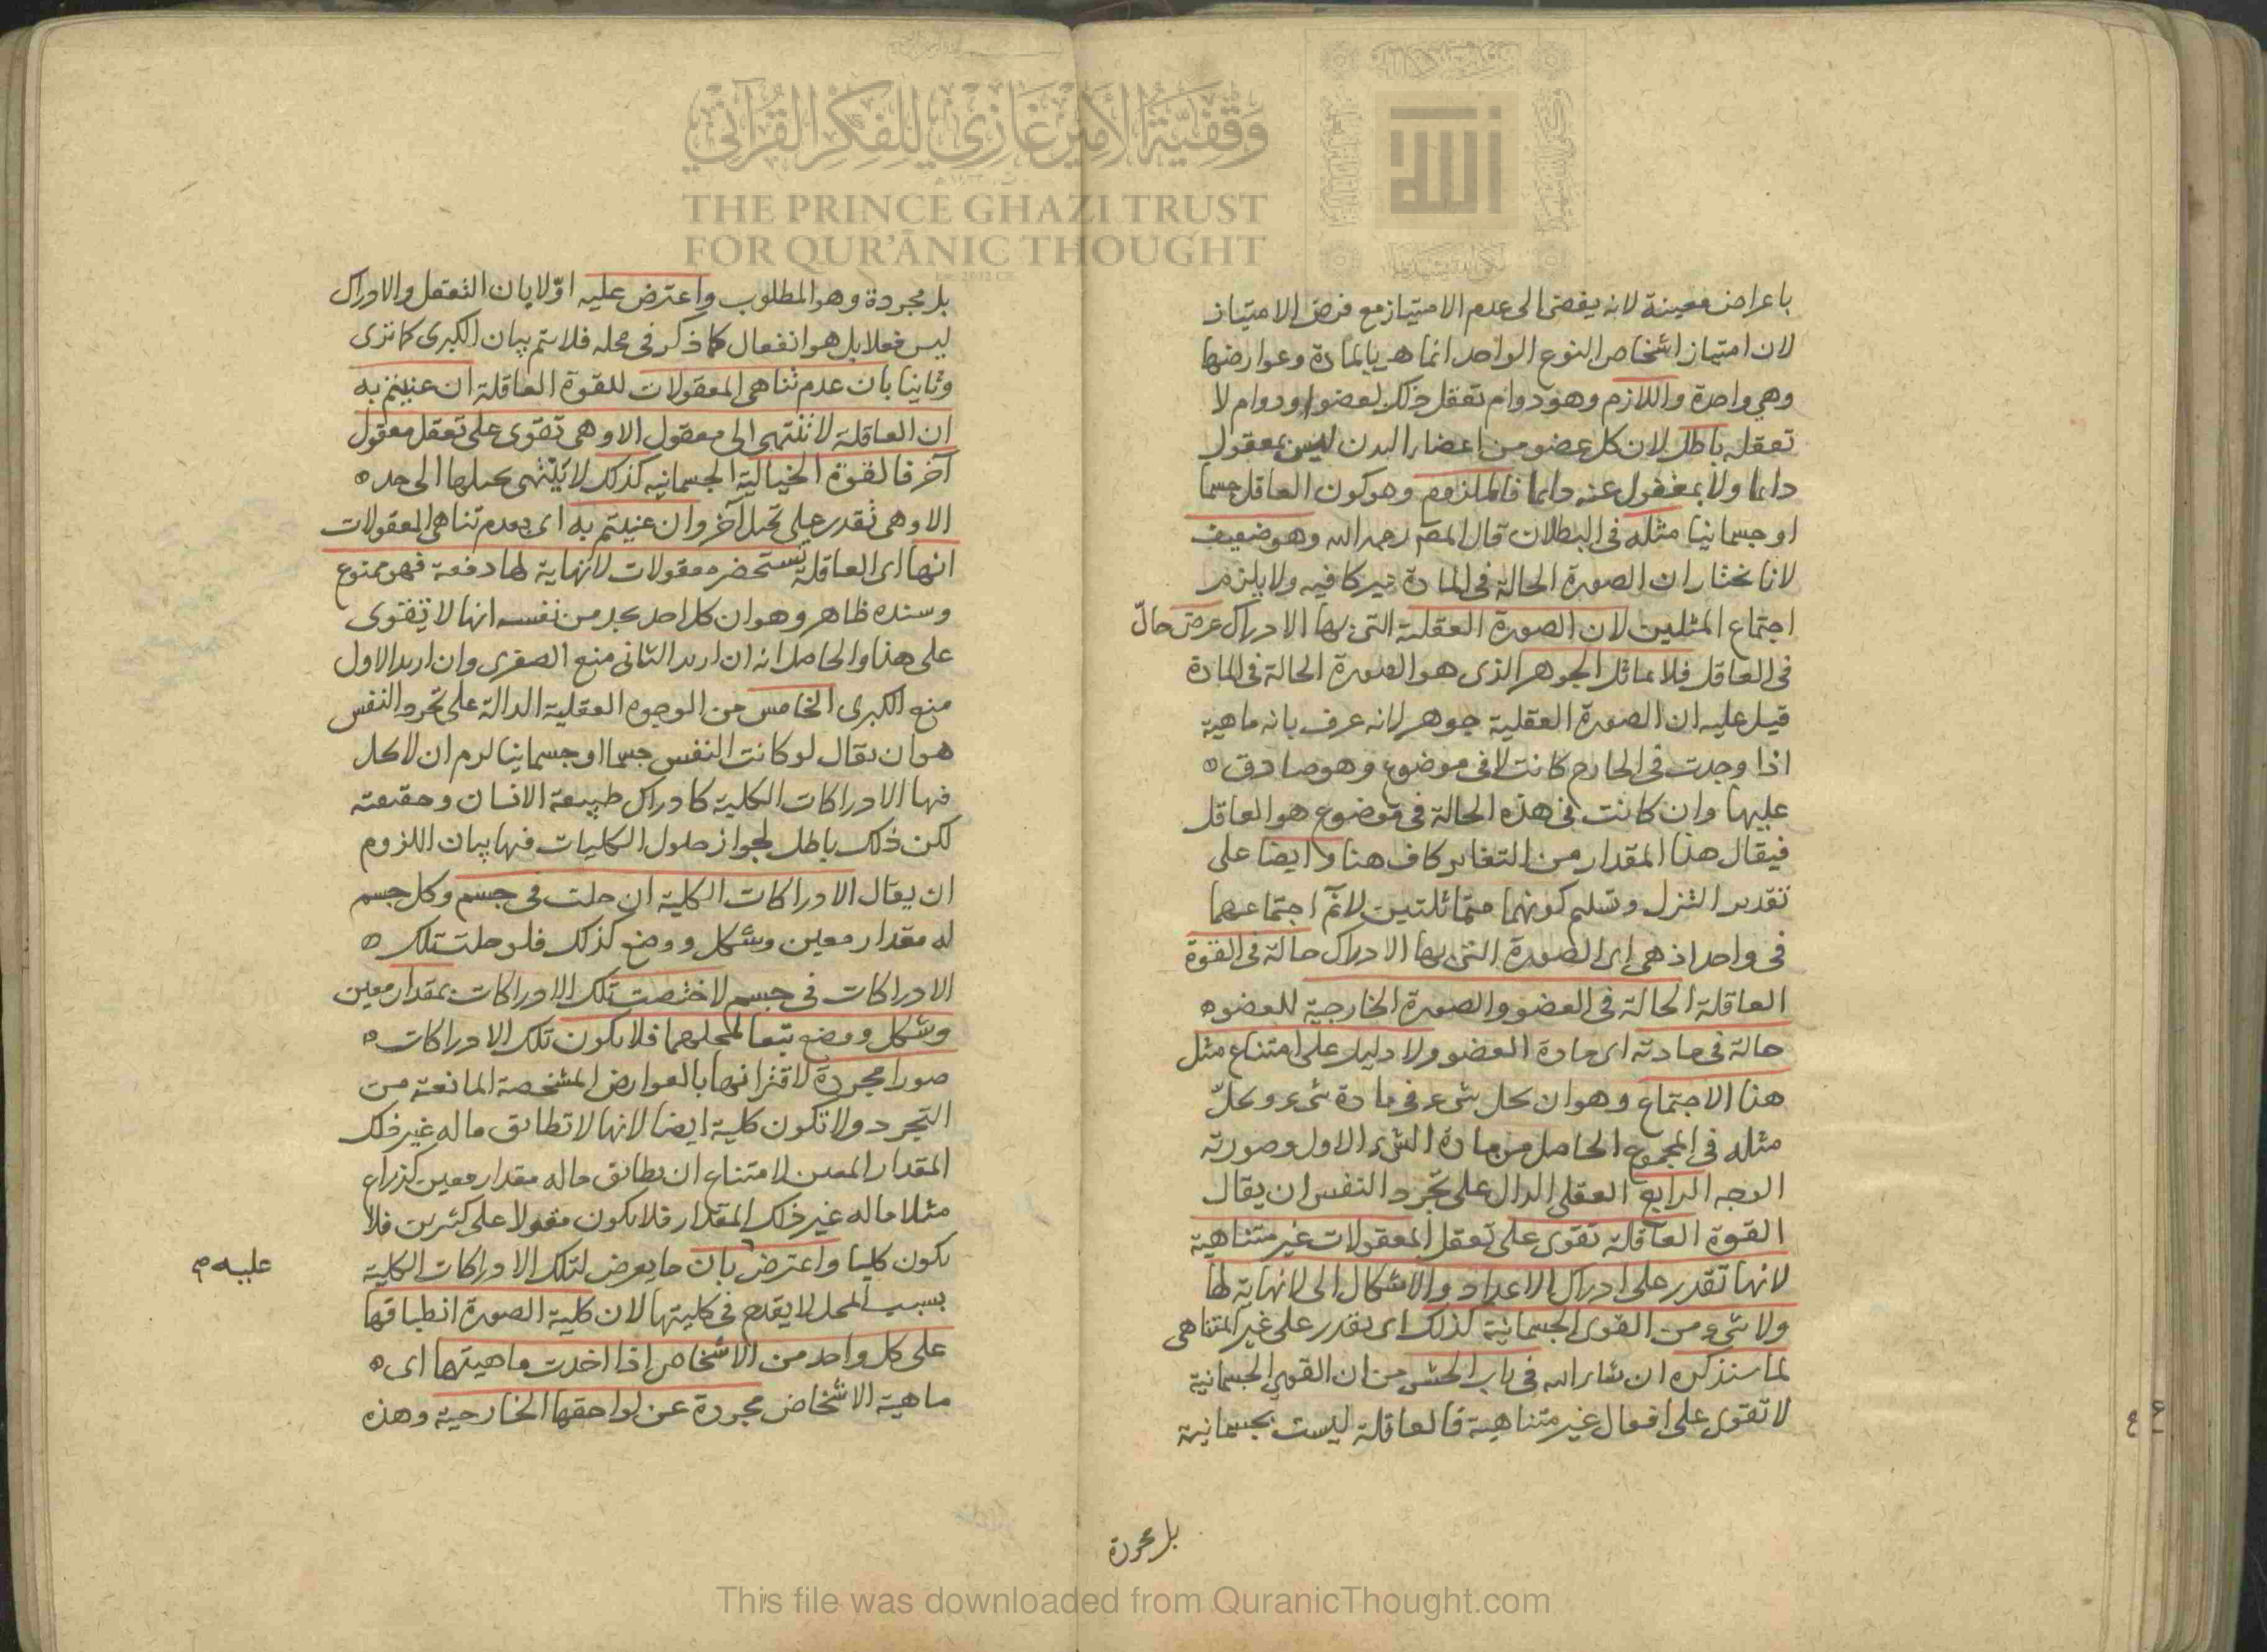 وقفية الأمير غازي للفكر القرآني
THE PRINCE GHAZI TRUST
FOR QUR'ĀNIC THOUGHT
الله
باعراض معينة لانه يفضى الى عدم الامتياز مع فرض الامتياز
لان امتياز اشخاص النوع الواحد انما هو بالمادة وعوارضها
وهي واحدة واللازم وهو دوام تعقل ذلك العضو او دوام لا
تعقله باطل لان كل عضو من اعضاء البدن ليس بمعقول
دايما ولا بمغفول عنه دايما فالملزوم وهو كون العاقل جسما
او جسمانيا مثله في البطلان قال المصـ رحمه الله وهو ضعيف
لانا نختار ان الصورة الحالة في المادة غير كافيه ولا يلزم
اجتماع المثلين لان الصورة العقلية التى بها الادراك عرض حالّ
في العاقل فلا يماثل الجوهر الذى هو الصورة الحالة في المادة
قيل عليه ان الصورة العقلية جوهر لانه عرف بانه ماهية
اذا وجدت في الخارج كانت لا في موضوع وهو صادق
عليها وان كانت في هذه الحالة في موضوع هو العاقل
فيقال هذا المقدار من التغاير كاف هنا وايضا على
تقدير التنزل وتسليم كونهما متماثلتين لا نم اجتماعهما
في واحد اذ هي اى الصورة التى بها الادراك حالة في القوة
العاقلة الحالة في العضو والصورة الخارجية للعضو
حالة في مادته اى مادة العضو ولا دليل على امتناع مثل
هذا الاجتماع وهو ان يحل شىء في مادة شىء ويحلّ
مثله في المجموع الحاصل من مادة الشىء الاول وصورته
الوجه الرابع العقلى الدال على تجرد النفس ان يقال
القوة العاقلة تقوى على تعقل المعقولات غير متناهية
لانها تقدر على ادراك الاعداد والاشكال الى لا نهاية لها
ولا شىء من القوى الجسمانية كذلك اى يقدر على غير المتناهى
لما سنذكره ان شاء الله في باب الحشر من ان القوى الجسمانية
لا تقوى على افعال غير متناهية فالعاقلة ليست بجسمانية
بل مجردة
بل مجردة وهو المطلوب واعترض عليه اوّلا بان التعقل والادراك
ليس فعلا بل هو انفعال كما ذكر في محله فلا يتم بيان الكبرى كما ترى
وثانيا بان عدم تناهى المعقولات للقوة العاقلة ان عنيتم به
ان العاقلة لا تنتهى الى معقول الا وهى تقوى على تعقل معقول
آخر فالقوة الخيالية الجسمانيه كذلك لا ينتهى تخيلها الى حد
الا وهى تقدر على تخيل آخر وان عنيتم به اى بعدم تناهى المعقولات
انها اى العاقلة تستحضر معقولات لا نهاية لها دفعة فهو ممنوع
وسنده ظاهر وهو ان كل احد يجد من نفسه انها لا تقوى
على هذا والحاصل انه ان اريد الثانى منع الصغرى وان اريد الاول
منع الكبرى الخامس من الوجوه العقلية الدالة على تجرد النفس
هو ان يقال لو كانت النفس جسما او جسمانيا لزم ان لا تحل
فيها الادراكات الكلية كادراك طبيعة الانسان وحقيقته
لكن ذلك باطل لجواز حلول الكليات فيها بيان اللزوم
ان يقال الادراكات الكلية ان حلت في جسم وكل جسم
له مقدار معين وشكل ووضع كذلك فلو حلت تلك
الادراكات في جسم لاختصت تلك الادراكات بمقدار معين
وشكل ووضع تبعا لمحلها فلا يكون تلك الادراكات
صورا مجردة لاقترانها بالعوارض المشخصة المانعة من
التجرد ولا تكون كلية ايضا لانها لا تطابق ماله غير ذلك
المقدار المعين لامتناع ان يطابق ماله مقدار معين كذراع
مثلا ماله غير ذلك المقدار فلا يكون مقولا على كثيرين فلا
يكون كليا واعترض بان ما يعرض لتلك الادراكات الكلية
عليه
بسبب المحل لا يقدح في كليتها لان كلية الصورة انطباقها
على كل واحد من الاشخاص اذا اخذت ماهيتها اى
ماهية الاشخاص مجردة عن لواحقها الخارجية وهذه
This file was downloaded from QuranicThought.com